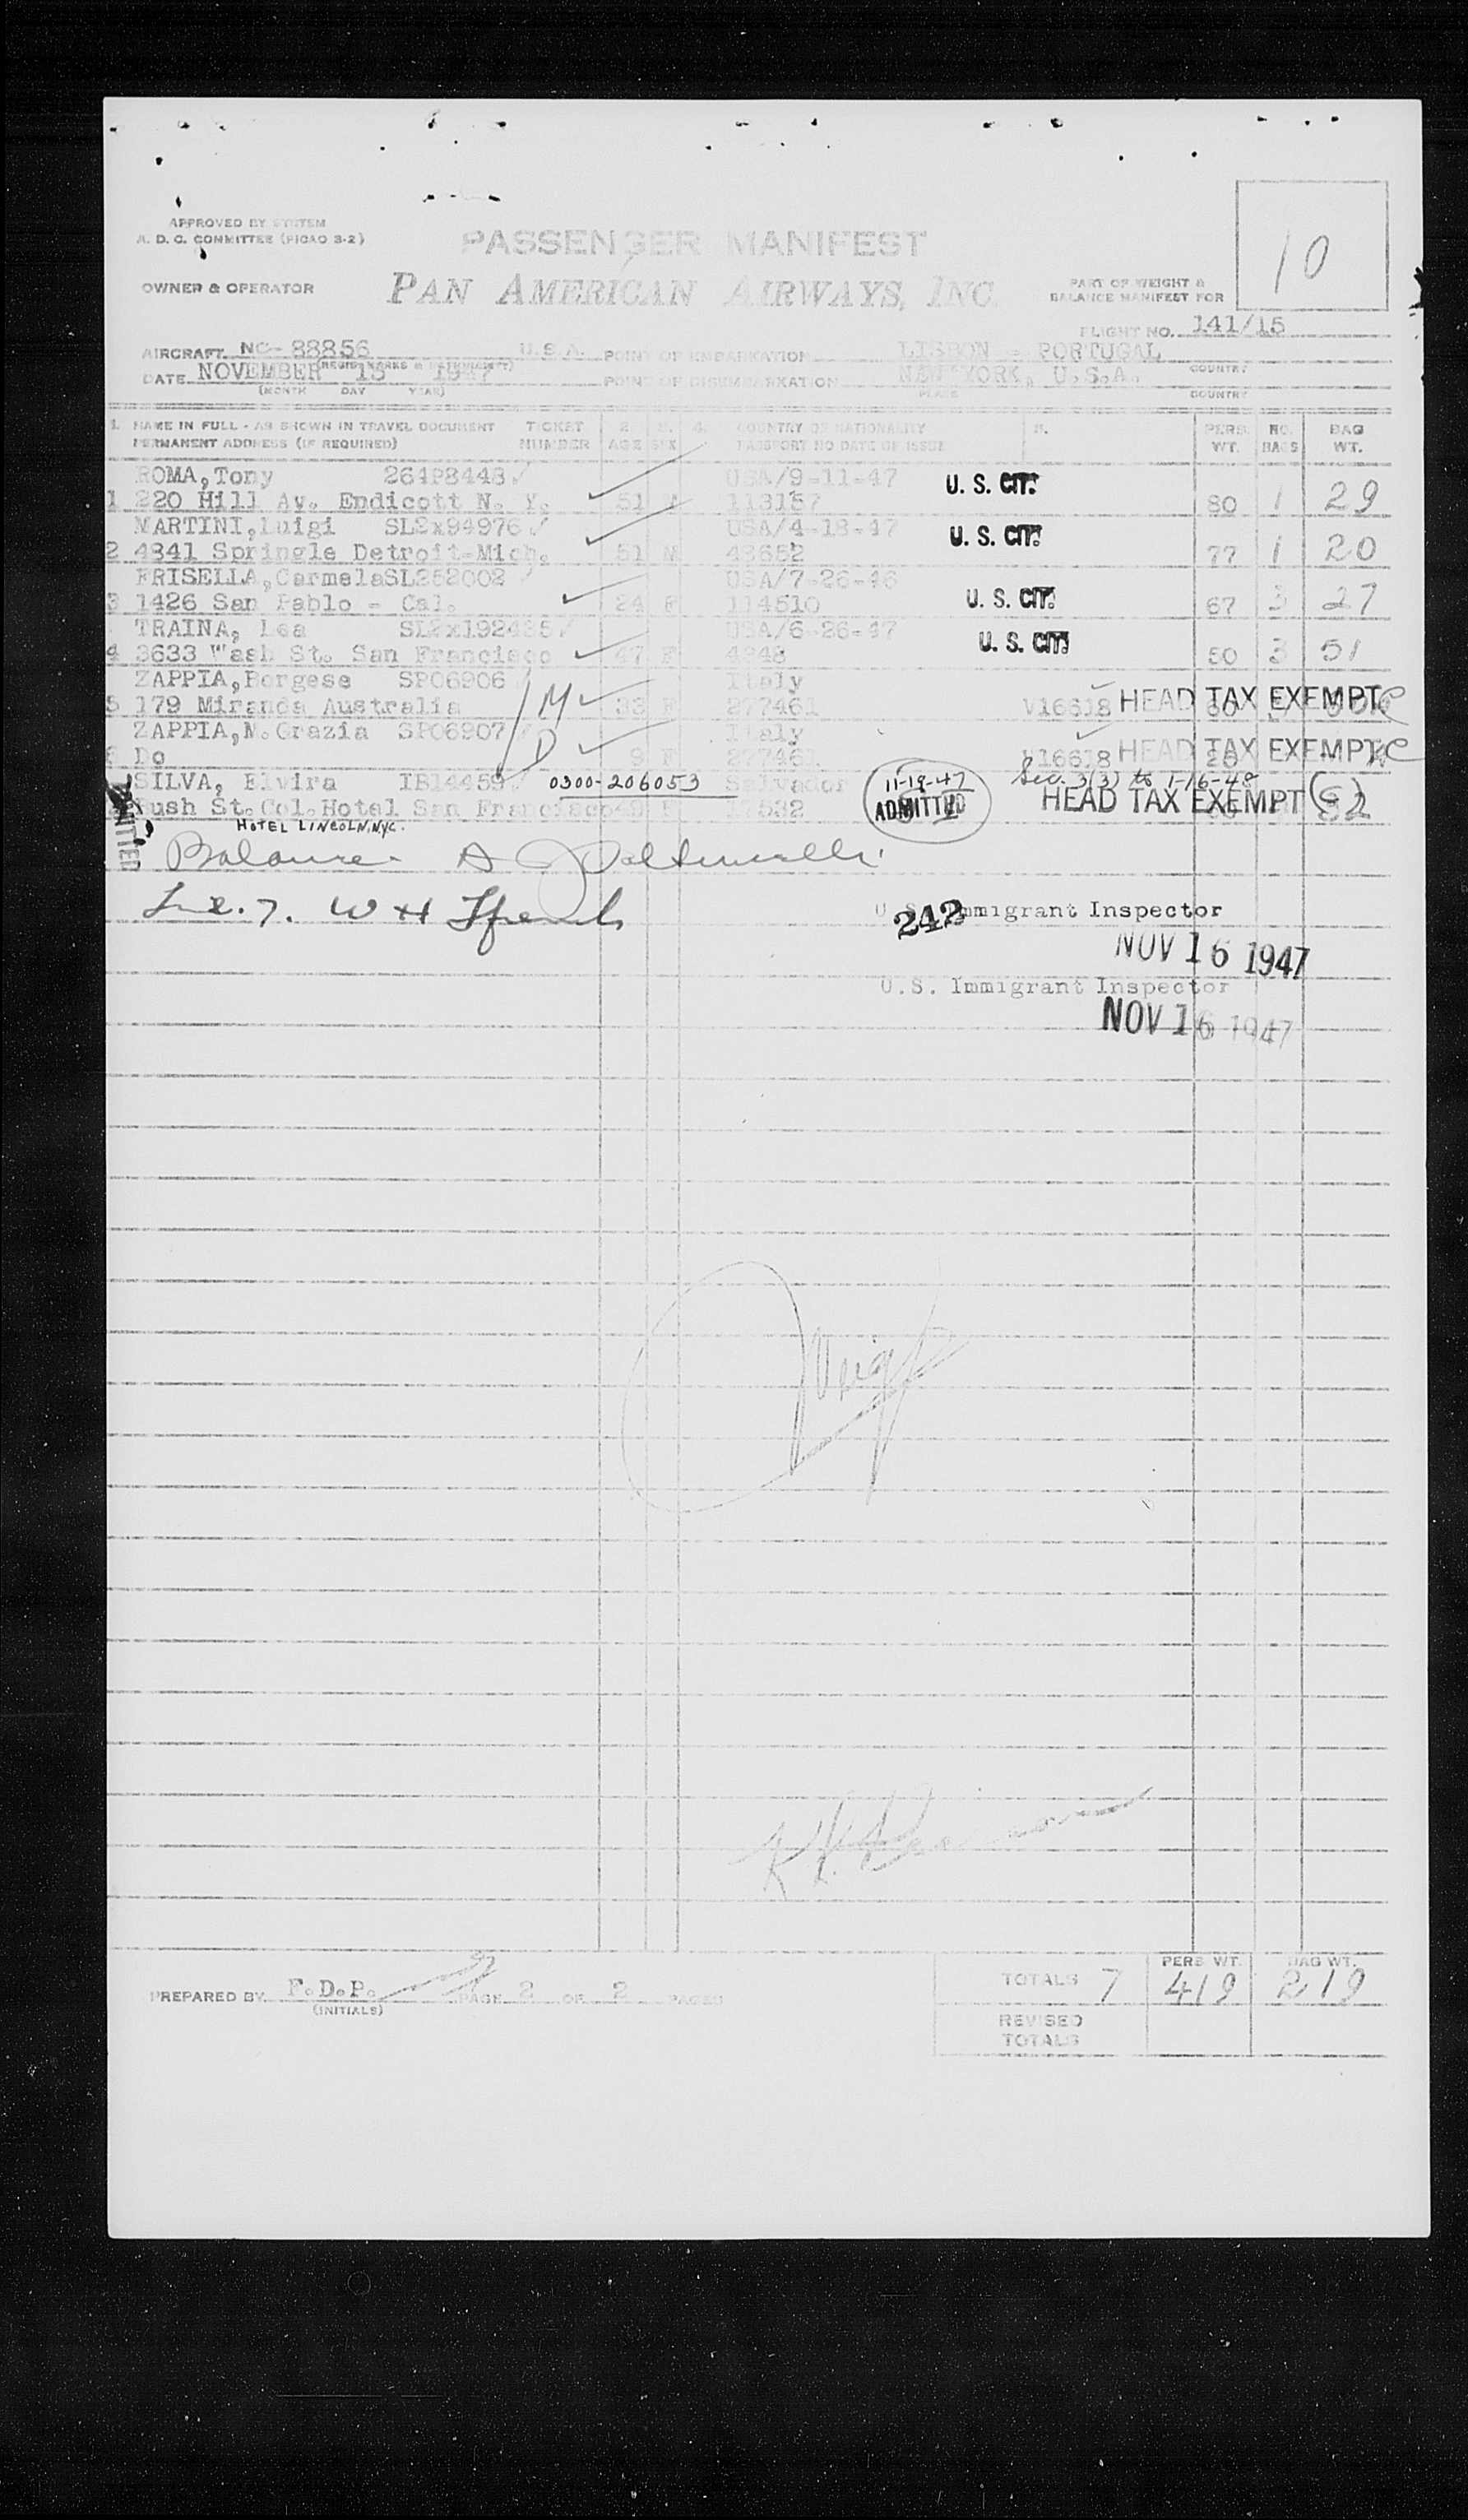 APPROVED BY SYSTEM
A. D. C. COMMITTEE (PICAO 3-2)
10
PASSENGER MANIFEST
OWNER & OPERATOR
PAN AMERICAN AIRWAYS, INC.
PART OF WEIGHT &
BALANCE MANIFEST FOR
FLIGHT NO. 141/15
AIRCRAFT NC-88856 U.S.A. POINT OF EMBARKATION LISBON - PORTUGAL
DATE NOVEMBER 15 1947 POINT OF DISEMBARKATION NEW YORK, U.S.A. COUNTRY
(MONTH DAY YEAR) PLACE COUNTRY
1. NAME IN FULL - AS SHOWN IN TRAVEL DOCUMENT TICKET 2. 3. 4. COUNTRY OF NATIONALITY 5. PERS. NO. BAG
PERMANENT ADDRESS (IF REQUIRED) NUMBER AGE SEX PASSPORT NO DATE OF ISSUE WT. BAGS WT.
ROMA,Tony 264P8448 USA/9-11-47 U. S. CIT.
1 220 Hill Av. Endicott N. Y. 51 M 113157 80 1 29
MARTINI,Luigi SL2x94976 USA/4-18-47 U. S. CIT.
2 4841 Springle Detroit-Mich. 51 M 48652 77 1 20
FRISELLA,CarmelaSL252002 USA/7-26-46 U. S. CIT.
3 1426 San Pablo - Cal. 24 F 114510 67 3 27
TRAINA, Lea SL2x192435 USA/6-26-47 U. S. CIT.
4 3633 Wash St. San Francisco 47 F 4248 50 3 51
ZAPPIA,Borgese SP06906 Italy
5 179 Miranda Australia M 33 277461 V16618 HEAD TAX EXEMPT
ZAPPIA,M.Grazia SP06907 Italy
6 Do D 9 F 277461 16618 HEAD TAX EXEMPT
SILVA, Elvira IB14459 0300-206053 Salvador 11-19-47 Sec. 3(3) to 1-16-48
Bush St.Col.Hotel San Francisco 49 F ADMITTED HEAD TAX EXEMPT
HOTEL LINCOLN, NYC.
Balance A
Line 7. W H
242 U. S. Immigrant Inspector
NOV 16 1947
U.S. Immigrant Inspector
NOV 16 1947
PREPARED BY F.D.P. PAGE 2 OF 2 PAGES
(INITIALS)
PERS WT. BAG WT.
TOTALS 7 419 219
REVISED
TOTALS